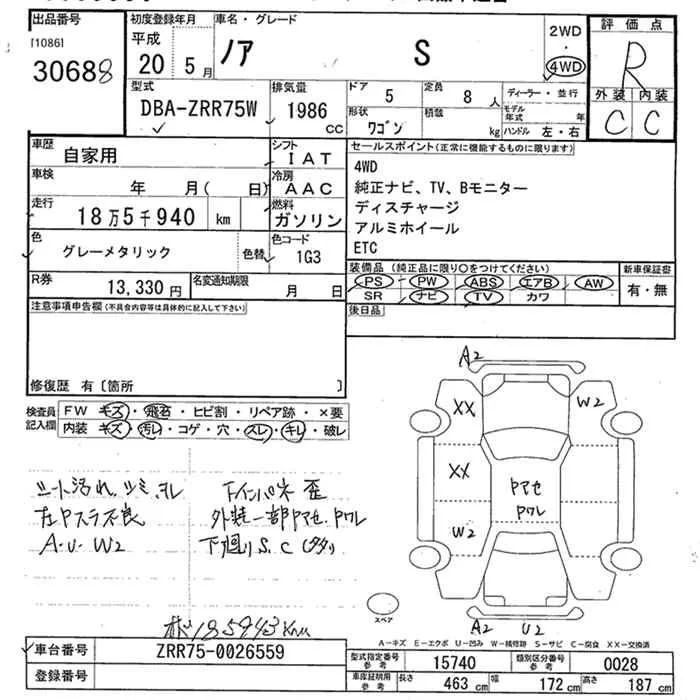 出品番号 初度登録年月 車名・グレード 2WD・4WD 評価点
[1086] 平成 20 年 5 月 ノア S R
30688 外装 内装
型式 排気量 ドア 5 定員 8 人 ディーラー・並行 C C
DBA-ZRR75W 1986 CC 形状 ワゴン 積載 kg モデル年式 年
ハンドル 左・右
車歴 自家用 シフト IAT セールスポイント(正常に機能するものに限ります)
車検 年 月(日) 冷房 AAC 4WD
走行 18万5千940 km 燃料 ガソリン 純正ナビ、TV、Bモニター
ディスチャージ
色 グレーメタリック 色替 色コード 1G3 アルミホイール
ETC
R券 13,330 円 名変通知期限 月 日 装備品(純正品に限り○をつけてください) 新車保証書
PS PW ABS エアB AW 有・無
SR ナビ TV カワ
注意事項申告欄(不具合内容等は具体的に記入して下さい) 後日品
修復歴 有[箇所 ]
検査員記入欄 FW キズ・飛石・ヒビ割・リペア跡・×要
内装 キズ・汚レ・コゲ・穴・スレ・キレ・破レ
A2
XX W2
XX
W2
Pアセ
Pワレ
シート汚れ
A・U・W2
下インパネ 歪
外装一部Pアセ、Pワレ
下廻りS、C
スペア
A2 U2
185943km
A-キズ E-エクボ U-凹み W-補修跡 S-サビ C-腐食 XX-交換済
車台番号 ZRR75-0026559
登録番号
型式指定番号 参考 15740 類別区分番号 参考 0028
車庫証明用 参考 長さ 463 cm 幅 172 cm 高さ 187 cm